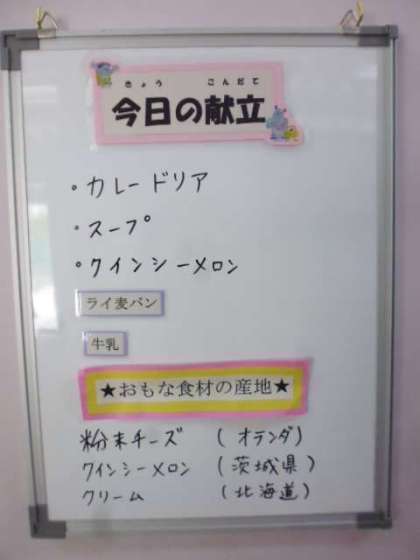 きょう こんだて
今日の献立
・カレードリア
・スープ
・クインシーメロン
ライ麦パン
牛乳
★おもな食材の産地★
粉末チーズ (オランダ)
クインシーメロン (茨城県)
クリーム (北海道)